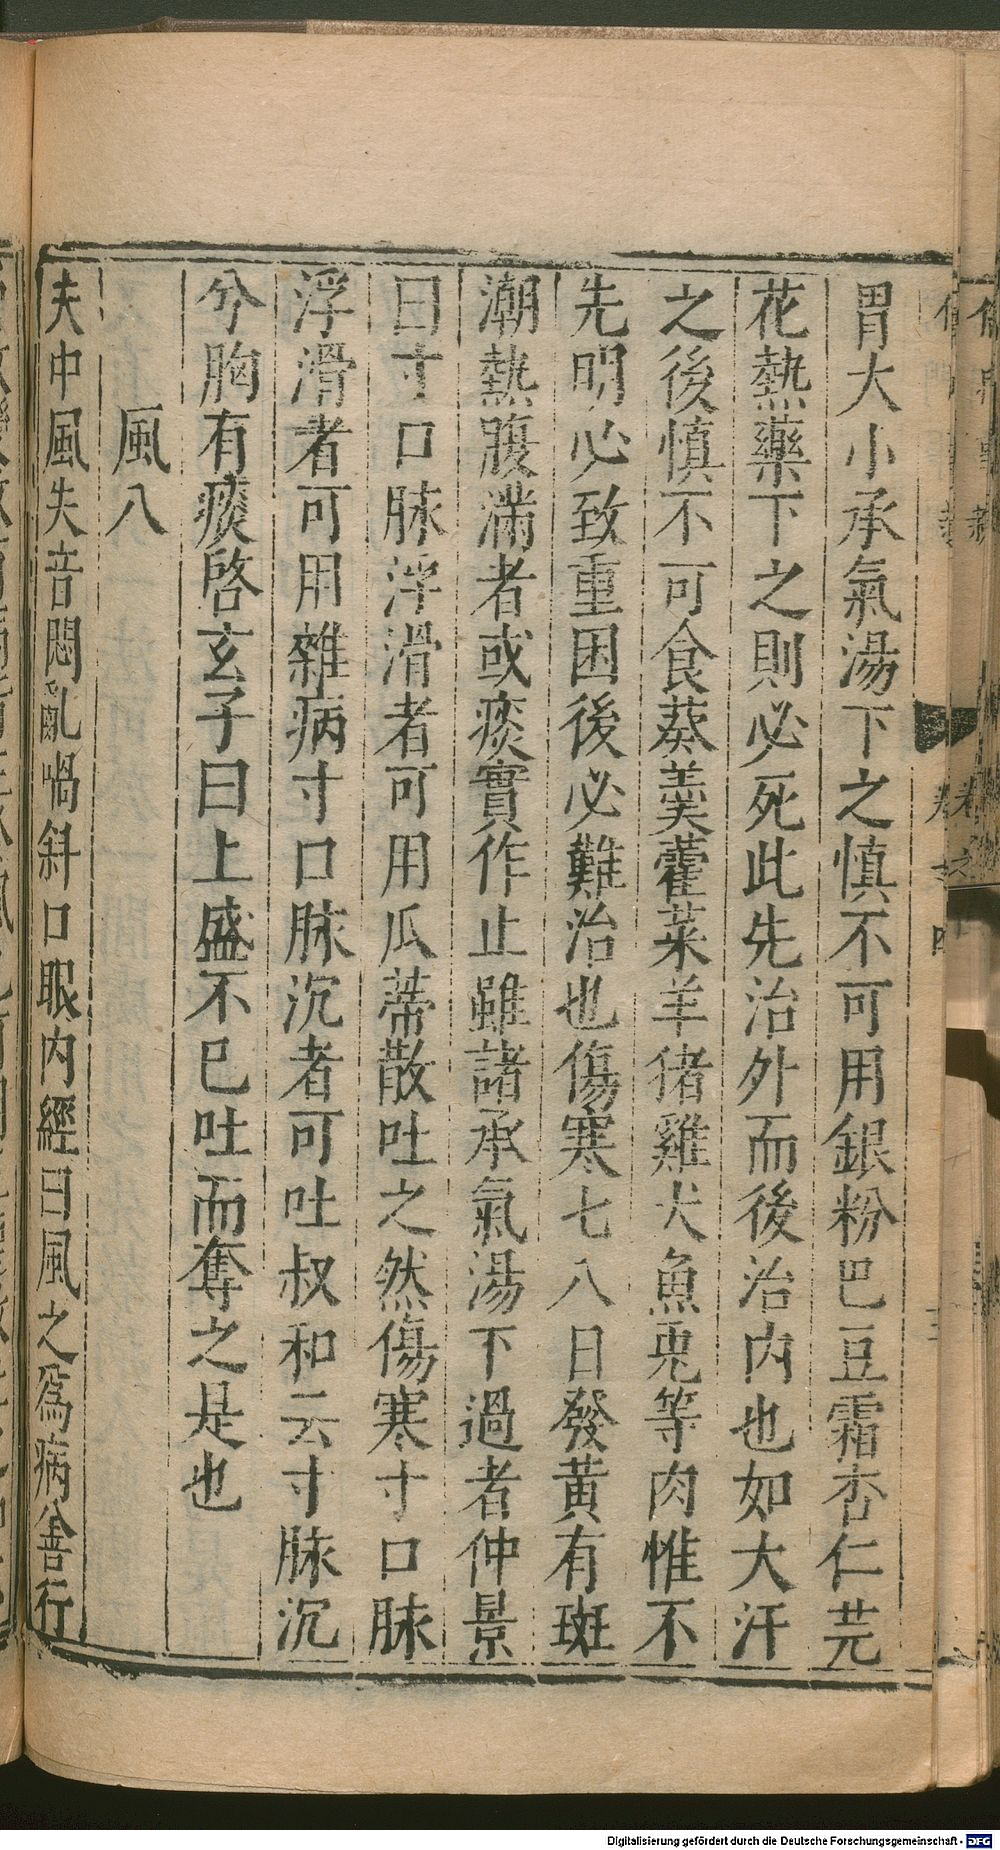 胃大小承氣湯下之慎不可用銀粉巴豆霜杏仁芫
花熱藥下之則必死此先治外而後治内也如大汗
之後慎不可食葵羹藿菜羊猪雞犬魚兎等肉惟不
先明必致重困後必難治也傷寒七八日發黄有斑
潮熱腹滿者或痰實作止雖諸承氣湯下過者仲景
曰寸口脉浮滑者可用瓜蒂散吐之然傷寒寸口脉
浮滑者可用雜病寸口脉沉者可吐叔和云寸脉沉
兮胸有痰啓玄子曰上盛不已吐而奪之是也
風八
夫中風失音悶亂喎斜口眼内經曰風之爲病善行
Digitalisierung gefördert durch die Deutsche Forschungsgemeinschaft - DFG